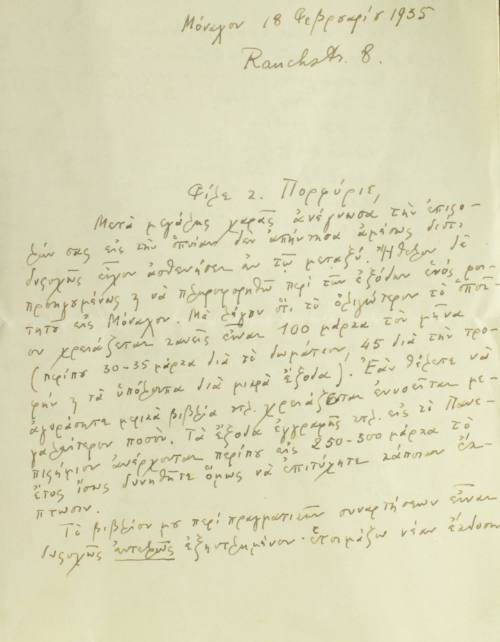 Μόναχον 18 Φεβρουαρίου 1935
Rauchstr. 8.
Φίλε κ. Πορφύριε,
Μετὰ μεγάλης χαρᾶς ἀνέγνωσα τὴν ἐπιστο-
λήν σας εἰς τὴν ὁποίαν δὲν ἀπήντησα ἀμέσως διότι
δυςυχῶς εἶχον ἀσθενήσει ἐν τῷ μεταξύ. Ἤθελον δὲ
προηγουμένως ϗ νὰ πληροφορηθῶ περὶ τῶν ἐξόδων ἑνὸς φοι-
τητοῦ εἰς Μόναχον. Μὲ λέγουν ὅτι τὸ ὀλιγώτερον τὸ ὁποῖ-
ον χρειάζεται κανεὶς εἶναι 100 μάρκα τὸν μῆνα
(περίπου 30-35 μάρκα διὰ τὸ δωμάτιον, 45 διὰ τὴν τρο-
φὴν ϗ τὰ ὑπόλοιπα διὰ μικρὰ ἔξοδα). Ἐὰν θέλετε νὰ
ἀγοράσητε μερικὰ βιβλία κτλ. χρειάζεται ἐννοεῖται με-
γαλείτερον ποσὸν. Τὰ ἔξοδα ἐγγραφῆς κτλ. εἰς τὸ Πανε-
πιςήμιον ἀνέρχονται περίπου εἰς 250-300 μάρκα τὸ
ἔτος ἴσως δυνηθῆτε ὅμως νὰ ἐπιτύχητε κάποιαν ἔκ-
πτωσιν.
Τὸ βιβλίον μου περὶ πραγματικῶν συναρτήσεων εἶναι
δυςυχῶς ἐντελῶς ἐξηντλημένον· ἑτοιμάζω νέαν ἔκδοσιν